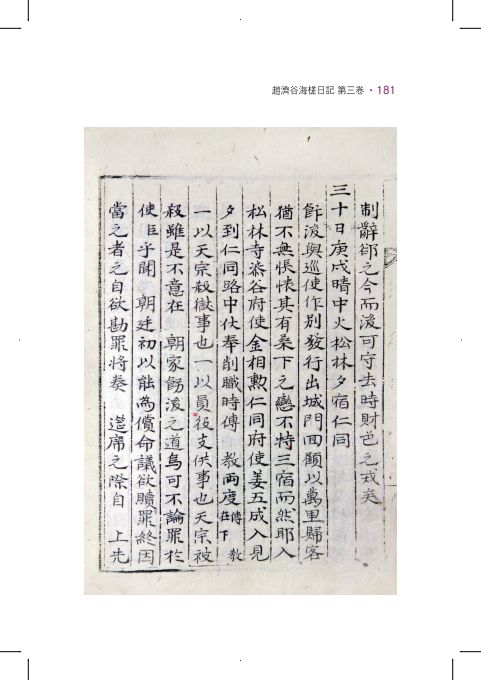 趙濟谷海槎日記 第三卷 · 181
制辭卻之今而後可守去時財色之戒矣
三十日庚戌晴中火松林夕宿仁同
飭後與巡使作別發行出城門回顧以萬里歸客
猶不無悵悚其有桑下之戀不特三宿而然耶入
松林寺漆谷府使金相勲仁同府使姜五成入見
夕到仁同路中伏奉削職時傳 教兩度在下傳教
一以天宗殺獄事也一以員役支供事也天宗被
殺雖是不意在 朝家飭後之道烏可不論罪於
使臣乎聞 朝廷初以能為償命議欲贖罪終因
當之者之自欲勘罪將奏 筵席之際自 上先